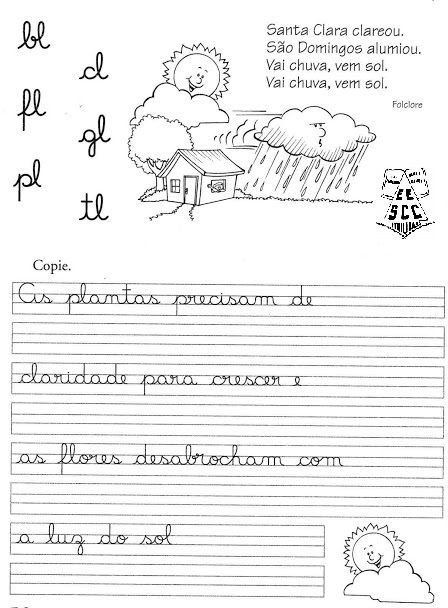 bl
cl
fl
gl
pl
tl
Santa Clara clareou.
São Domingos alumiou.
Vai chuva, vem sol.
Vai chuva, vem sol.
Folclore
EE
SCC
Copie.
As plantas precisam de
claridade para crescer e
as flores desabrocham com
a luz do sol